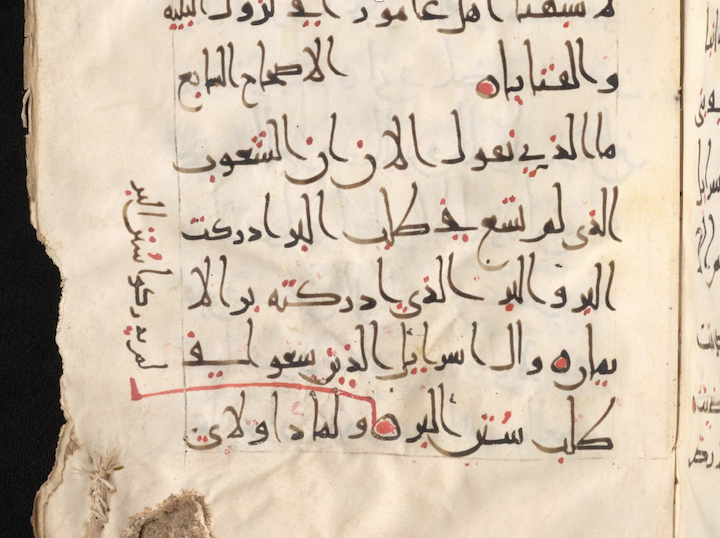 لاشبهنا اهل عامورا في نزول البليه
والفنا الاصحاح السابع
ما الذي نقول الان ان الشعوب
الذي لم تسع في طلب البر ادركت
البر والبر الذي ادركته بر الا
يمان وال اسرايل الذين سعوا في
طلب سنن البر ولماذا ولاي
لم يدركوا سنن البر